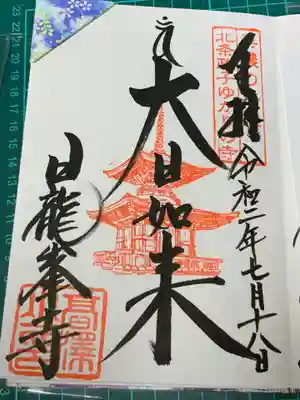 奉拝 令和二年七月十八日
北条政子ゆかりの寺
大日如来
日龍峯寺
髙澤